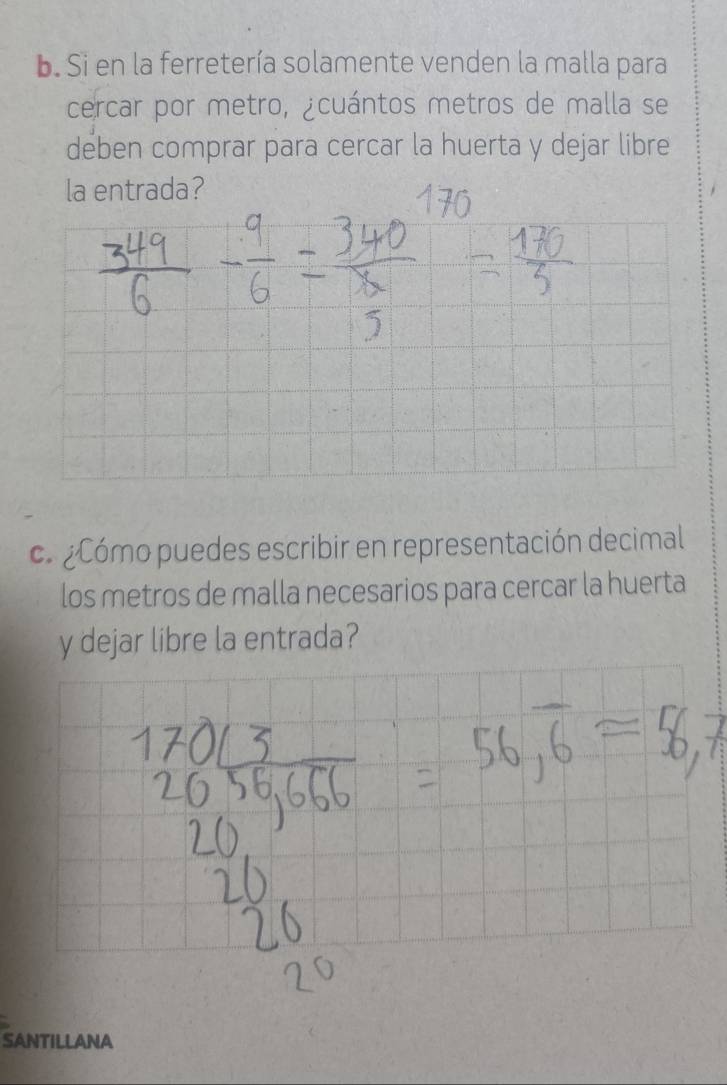 b. Si en la ferretería solamente venden la malla para
cercar por metro, ¿cuántos metros de malla se
deben comprar para cercar la huerta y dejar libre
la entrada?
170
349/6 - 9/6 = 340/6 = 170/3
3
c. ¿Cómo puedes escribir en representación decimal
los metros de malla necesarios para cercar la huerta
y dejar libre la entrada?
170 3 = 56,6̅ = 56,7
20 56,666
20
20
20
20
SANTILLANA